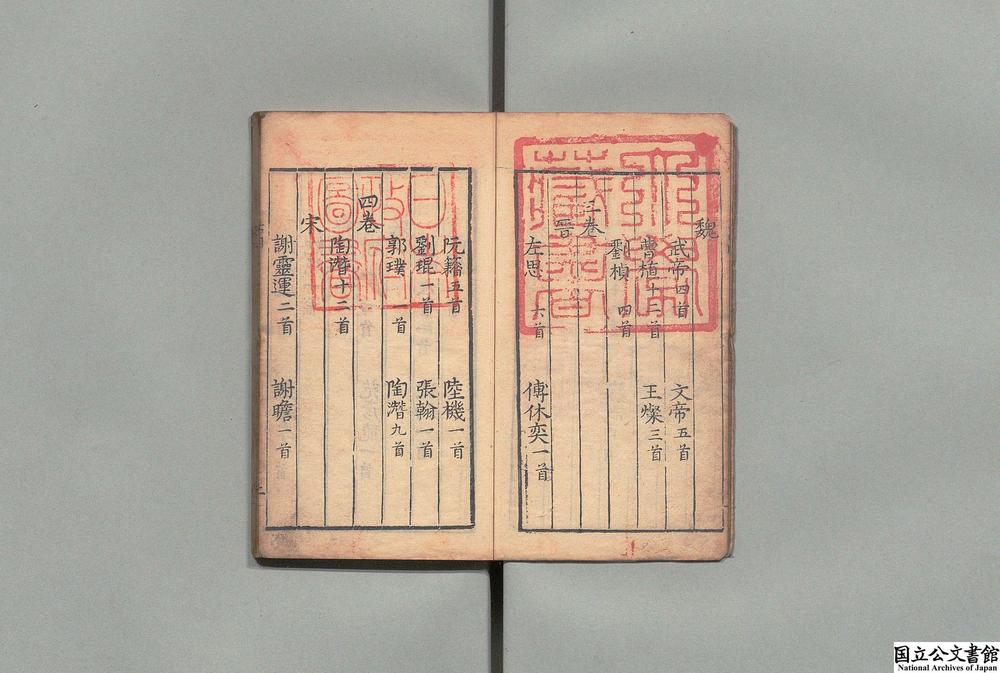 魏
武帝四首　文帝五首
曹植十二首　王燦三首
劉楨　四首
三卷
晉
左思　六首　傅休奕一首
阮籍五首　陸機一首
劉琨一首　張翰一首
郭璞一首　陶潛九首
四卷
陶潛十二首
宋
謝靈運二首　謝瞻一首
日本政府圖書
国立公文書館
National Archives of Japan